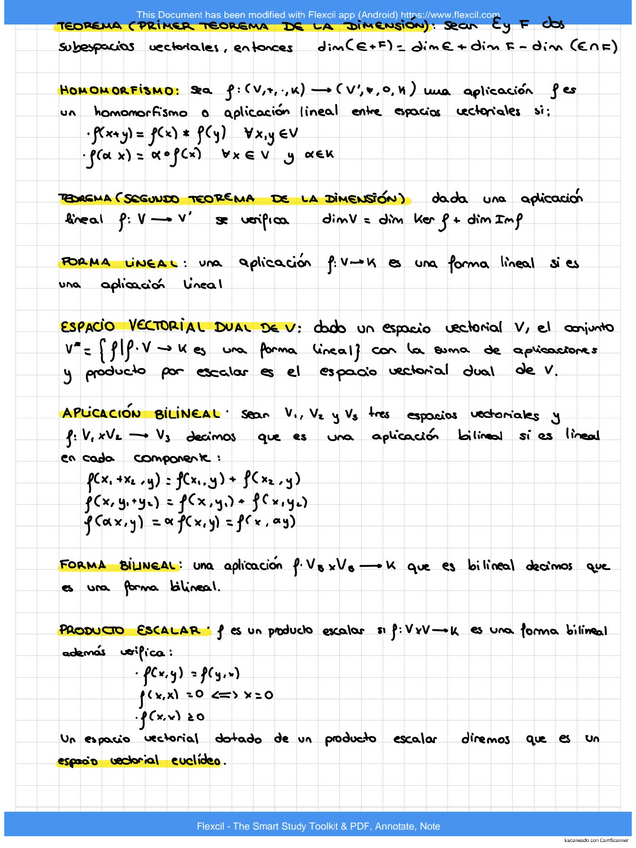 This Document has been modified with Flexcil app (Android) https://www.flexcil.com
TEOREMA (PRIMER TEOREMA DE LA DIMENSIÓN): sean E y F dos
subespacios vectoriales, entonces dim(E+F) = dim E + dim F - dim (E∩F)
HOMOMORFISMO: sea f: (V,+,·,K) → (V',*,o,K) una aplicación f es
un homomorfismo o aplicación lineal entre espacios vectoriales si:
· f(x+y) = f(x) * f(y) ∀x,y ∈V
· f(α x) = α o f(x) ∀x ∈ V y α∈K
TEOREMA (SEGUNDO TEOREMA DE LA DIMENSIÓN) dada una aplicación
lineal f: V → V' se verifica dim V = dim Ker f + dim Im f
FORMA LINEAL: una aplicación f: V→K es una forma lineal si es
una aplicación lineal
ESPACIO VECTORIAL DUAL DE V: dado un espacio vectorial V, el conjunto
V* = {f|f: V → K es una forma lineal} con la suma de aplicaciones
y producto por escalar es el espacio vectorial dual de V.
APLICACIÓN BILINEAL: sean V₁, V₂ y V₃ tres espacios vectoriales y
f: V₁ x V₂ → V₃ decimos que es una aplicación bilineal si es lineal
en cada componente:
f(x₁+x₂,y) = f(x₁,y) + f(x₂,y)
f(x,y₁+y₂) = f(x,y₁) + f(x,y₂)
f(αx,y) = α f(x,y) = f(x,αy)
FORMA BILINEAL: una aplicación f: V x V → K que es bilineal decimos que
es una forma bilineal.
PRODUCTO ESCALAR: f es un producto escalar si f: VxV→K es una forma bilineal
además verifica:
· f(x,y) = f(y,x)
f(x,x) = 0 <=> x=0
· f(x,x) ≥ 0
Un espacio vectorial dotado de un producto escalar diremos que es un
espacio vectorial euclídeo.
Flexcil - The Smart Study Toolkit & PDF, Annotate, Note
Escaneado con CamScanner